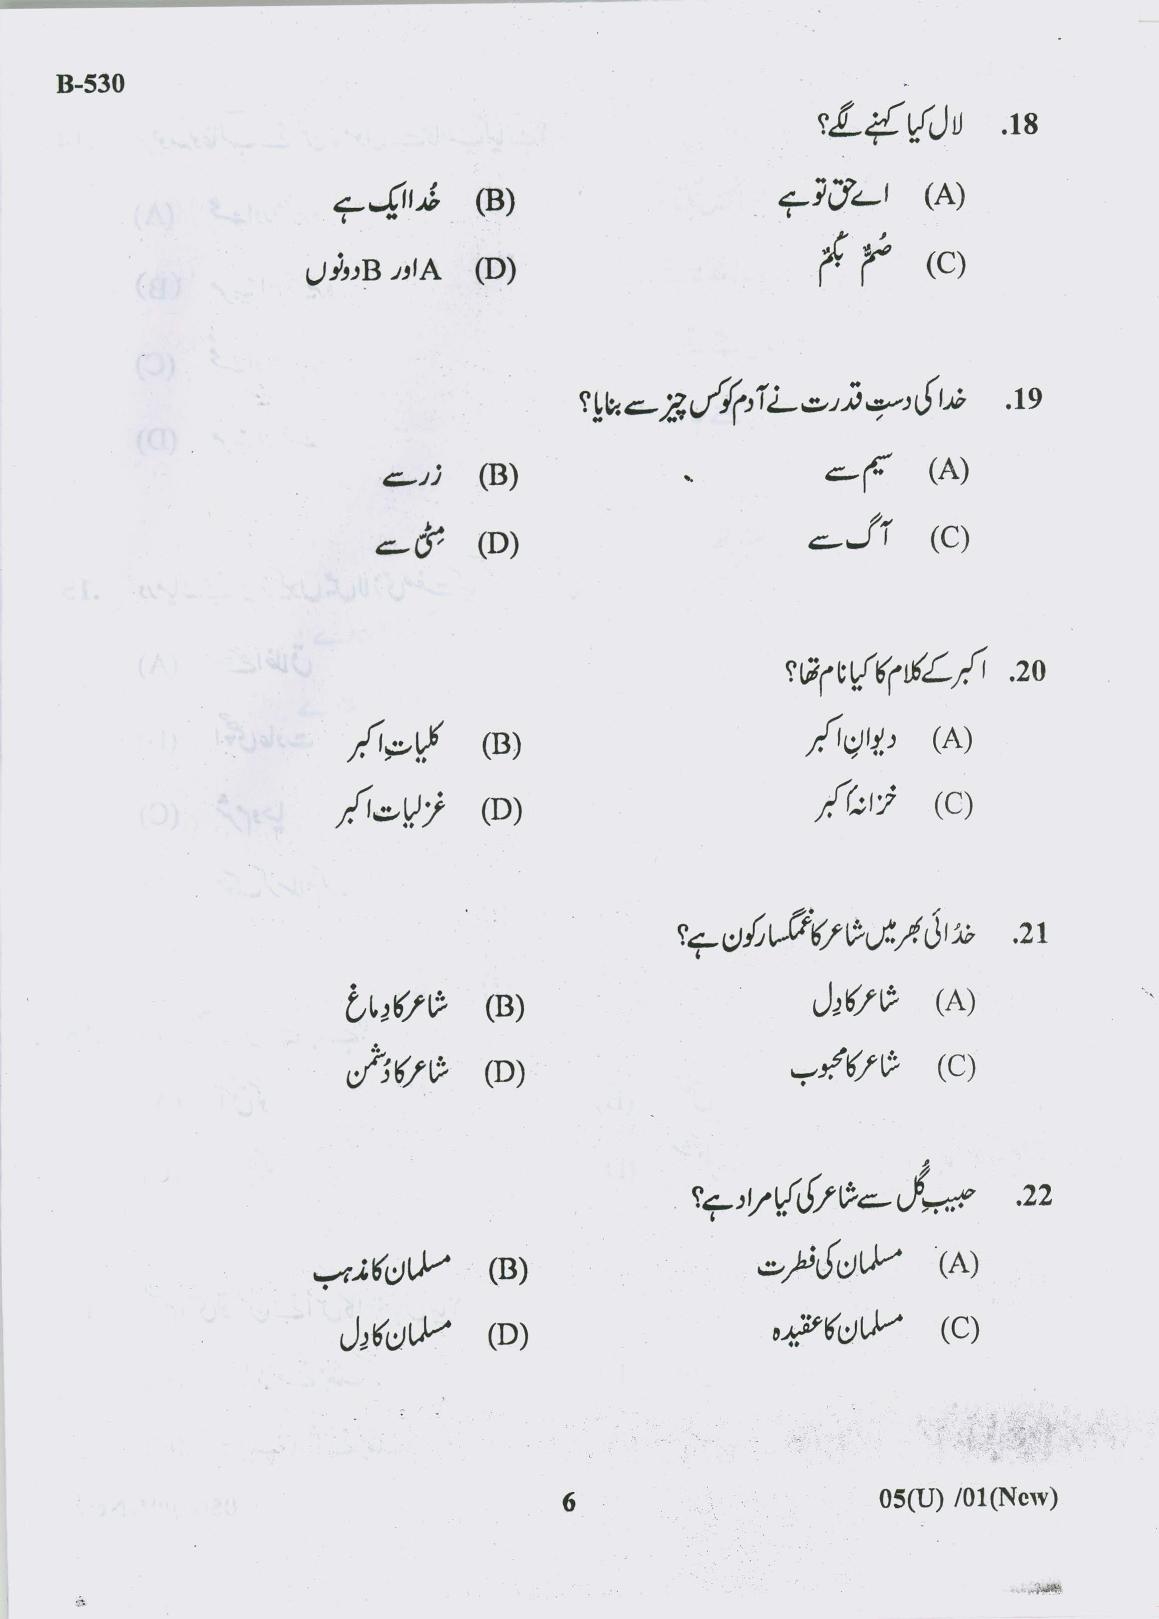 B-530
18. لال کیا کہنے لگے؟
(A) اے حق تو ہے (B) خُدا ایک ہے
(C) صُمٌّ بُکْمٌ (D) A اور B دونوں
19. خدا کی دستِ قدرت نے آدم کو کس چیز سے بنایا؟
(A) سیم سے (B) زر سے
(C) آگ سے (D) مِٹّی سے
20. اکبر کے کلام کا کیا نام تھا؟
(A) دیوانِ اکبر (B) کلیاتِ اکبر
(C) خزانۂ اکبر (D) غزلیات اکبر
21. خدُائی بھر میں شاعر کا غمگسار کون ہے؟
(A) شاعر کا دِل (B) شاعر کا دِماغ
(C) شاعر کا محبوب (D) شاعر کا دُشمن
22. حبیبِ گُل سے شاعر کی کیا مراد ہے؟
(A) مسلمان کی فطرت (B) مسلمان کا مذہب
(C) مسلمان کا عقیدہ (D) مسلمان کا دِل
6 05(U) /01(New)